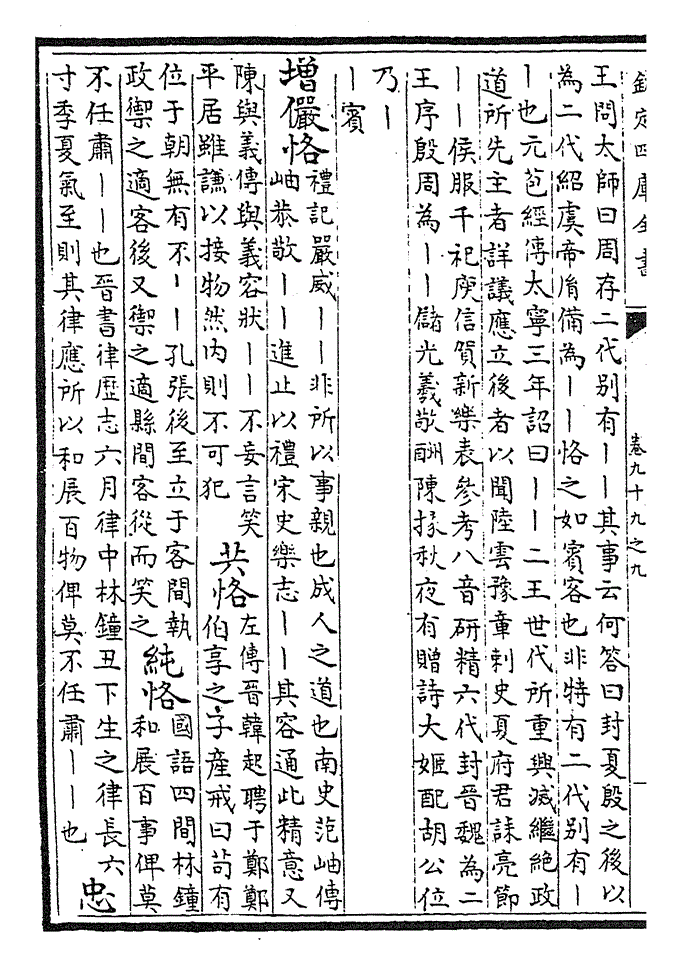 欽定四庫全書
卷九十九之九
王問太師曰周存二代别有丨丨其事云何答曰封夏殷之後以
為二代紹虞帝胤備為丨丨恪之如賓客也非特有二代别有丨
丨也元苞經傳太寧三年詔曰丨丨二王世代所重興滅繼絶政
道所先主者詳議應立後者以聞陸雲豫章刺史夏府君誄亮節
丨丨侯服千祀庾信賀新樂表參考八音研精六代封晉魏為二
王序殷周為丨丨儲光羲敬酬陳掾秋夜有贈詩大姬配胡公位
乃丨
丨賓
增儼恪
禮記嚴威丨丨非所以事親也成人之道也南史范岫傳
岫恭敬丨丨進止以禮宋史樂志丨丨其容通此精意又
陳與義傳與義容狀丨丨不妄言笑
平居雖謙以接物然内則不可犯
共恪
左傳晉韓起聘于鄭鄭
伯享之子産戒曰苟有
位于朝無有不丨丨孔張後至立于客間執
政禦之適客後又禦之適縣間客從而笑之
純恪
國語四間林鐘
和展百事俾莫
不任肅丨丨也晉書律歷志六月律中林鐘丑下生之律長六
寸季夏氣至則其律應所以和展百物俾莫不任肅丨丨也
忠